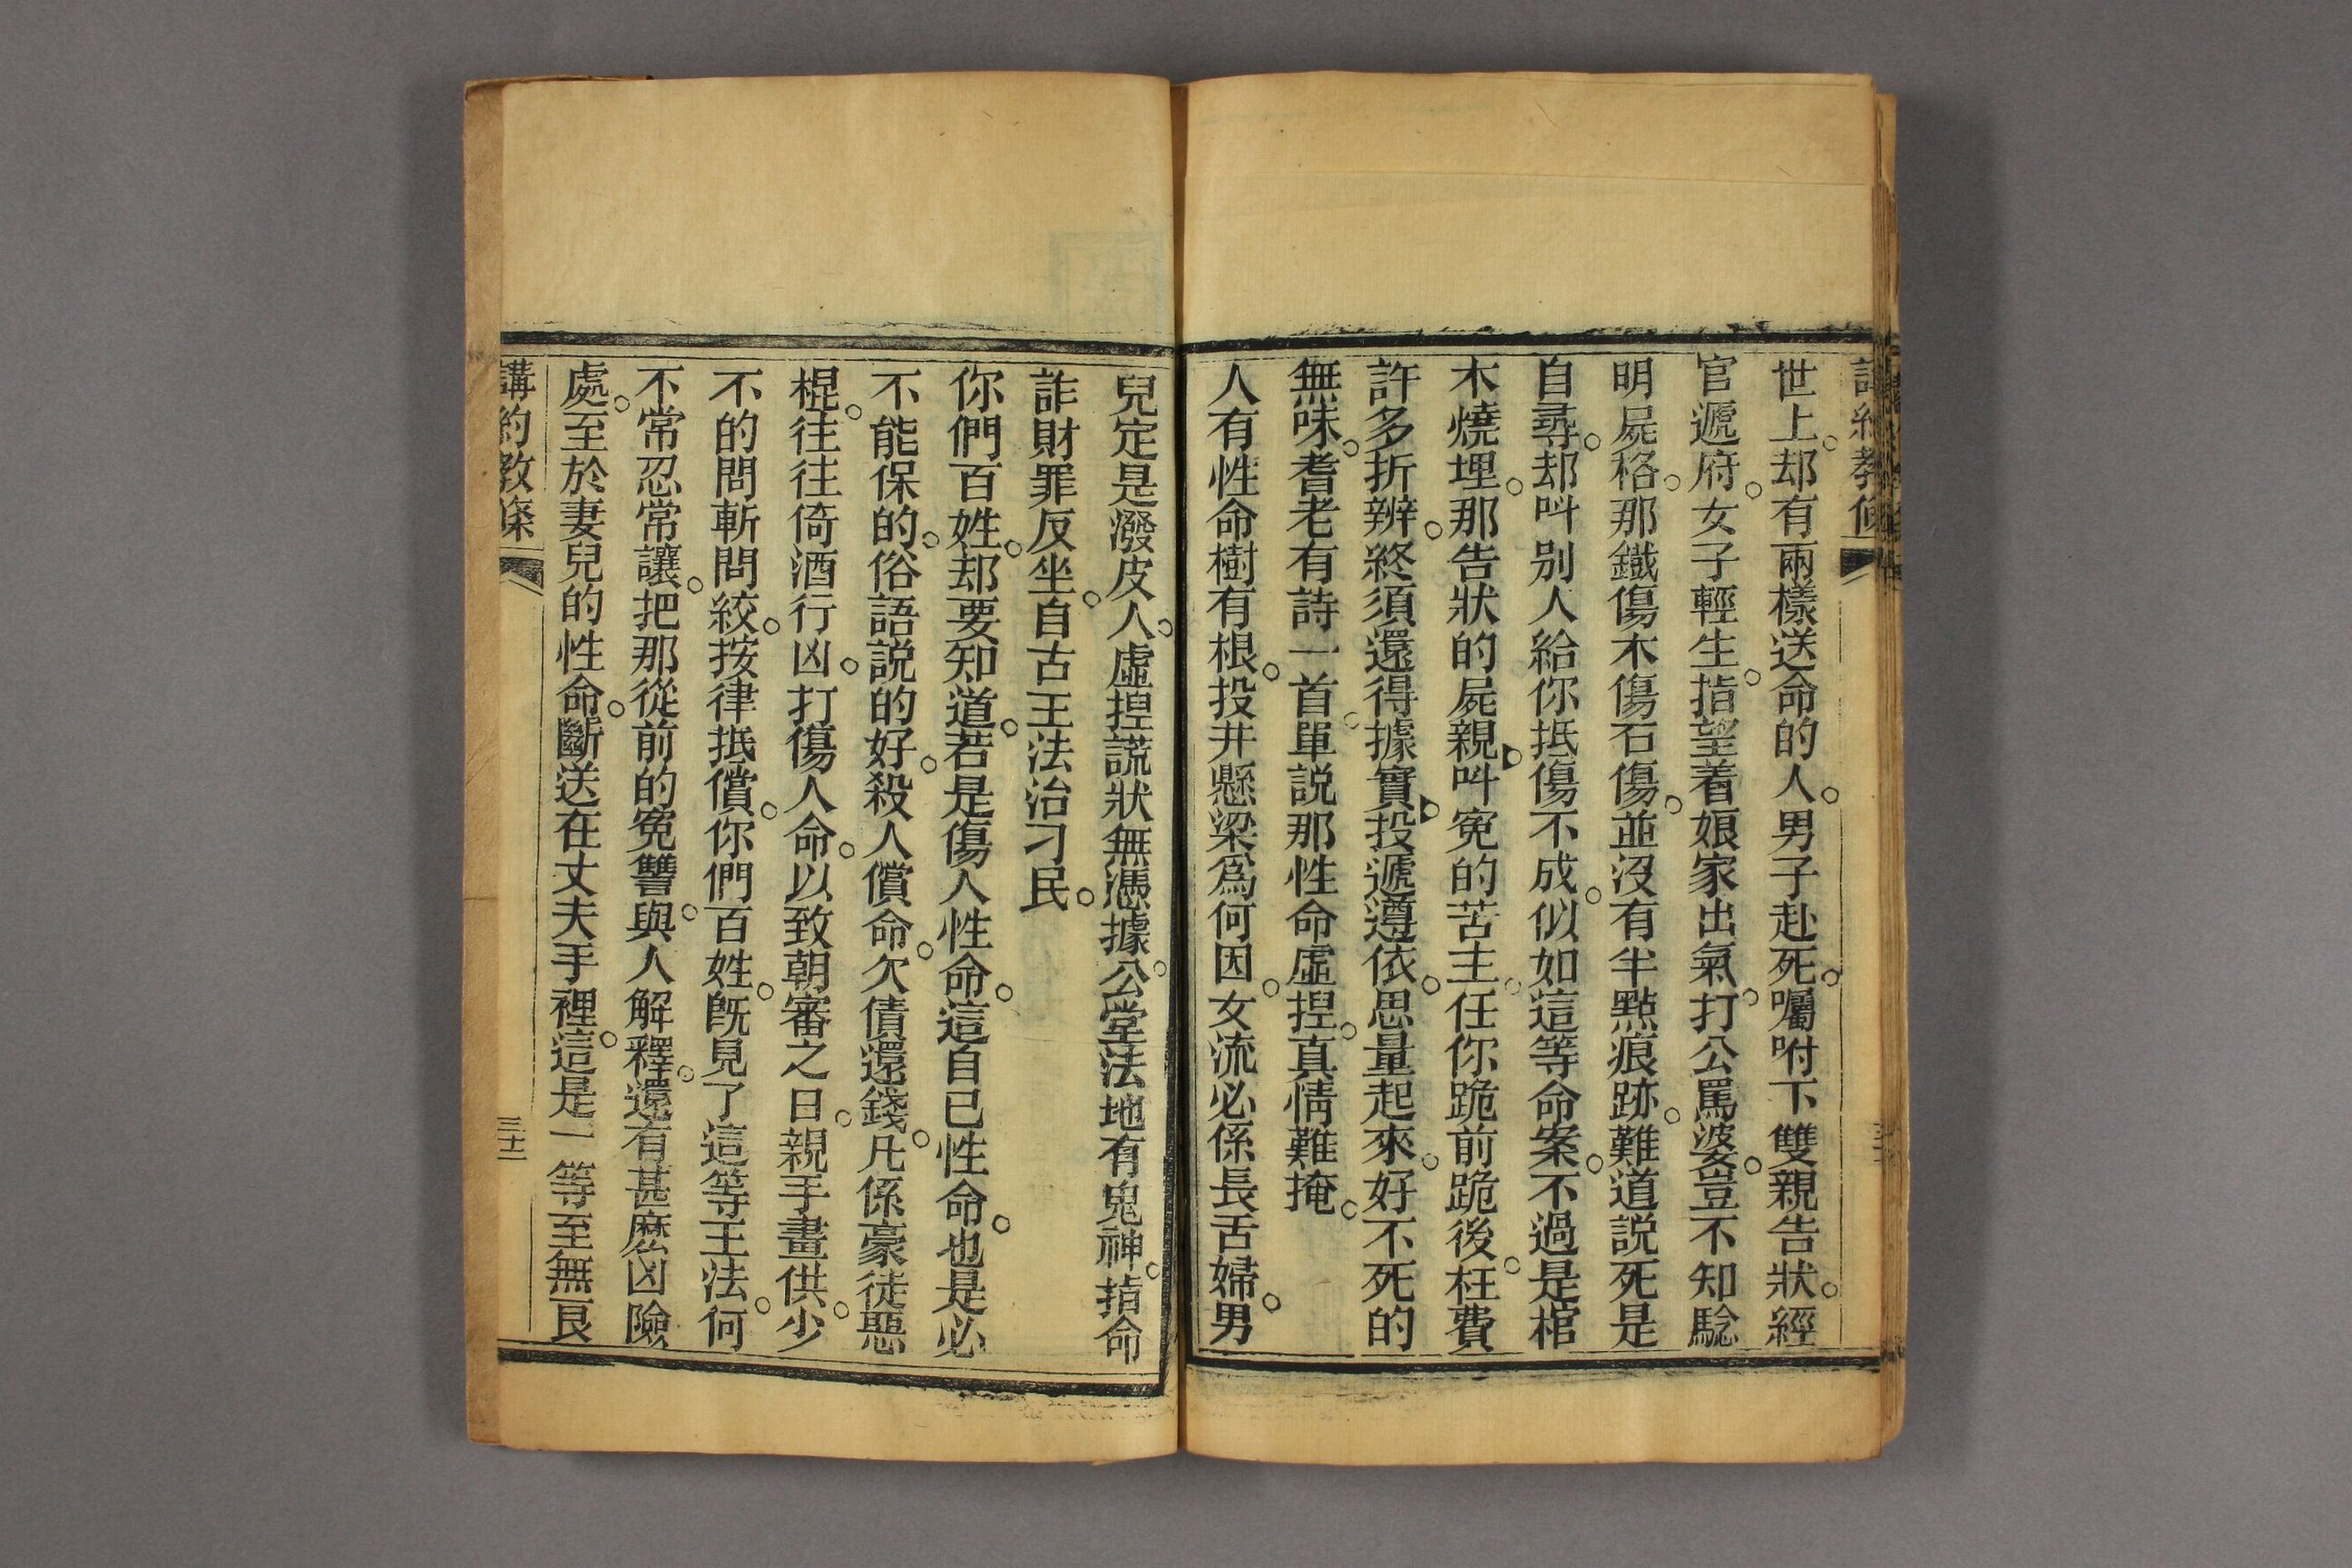 講約教條
世上。却有兩樣送命的人。男子赴死。囑咐下雙親告狀。經
官遞府。女子輕生。指望着娘家出氣。打公罵婆。豈不知騐
明屍格。那鐵傷木傷石傷。並沒有半點痕跡。難道説死是
自尋。却叫别人給你抵傷不成。似如這等命案。不過是棺
木燒埋。那告狀的屍親、叫寃的苦主。任你跪前跪後。枉費
許多折辨。終須還得據實、投遞遵依。思量起來。好不死的
無味。耆老有詩一首。單説那性命虛捏。真情難掩。
人有性命樹有根。投井懸梁爲何因。女流必係長舌婦。男
兒定是潑皮人。虛捏謊狀無憑據。公堂法地有鬼神。指命
詐財罪反坐。自古王法治刁民。
你們百姓。却要知道。若是傷人性命。這自已性命。也是必
不能保的。俗語説的好。殺人償命。欠債還錢。凡係豪徒惡
棍。往往倚酒行凶。打傷人命。以致朝審之日。親手畫供。少
不的問斬問絞。按律抵償。你們百姓。旣見了這等王法。何
不常忍常讓。把那從前的寃讐。與人解釋。還有甚麽凶險
處。至於妻兒的性命。斷送在丈夫手裡。這是一等至無良
講約教條
三十二